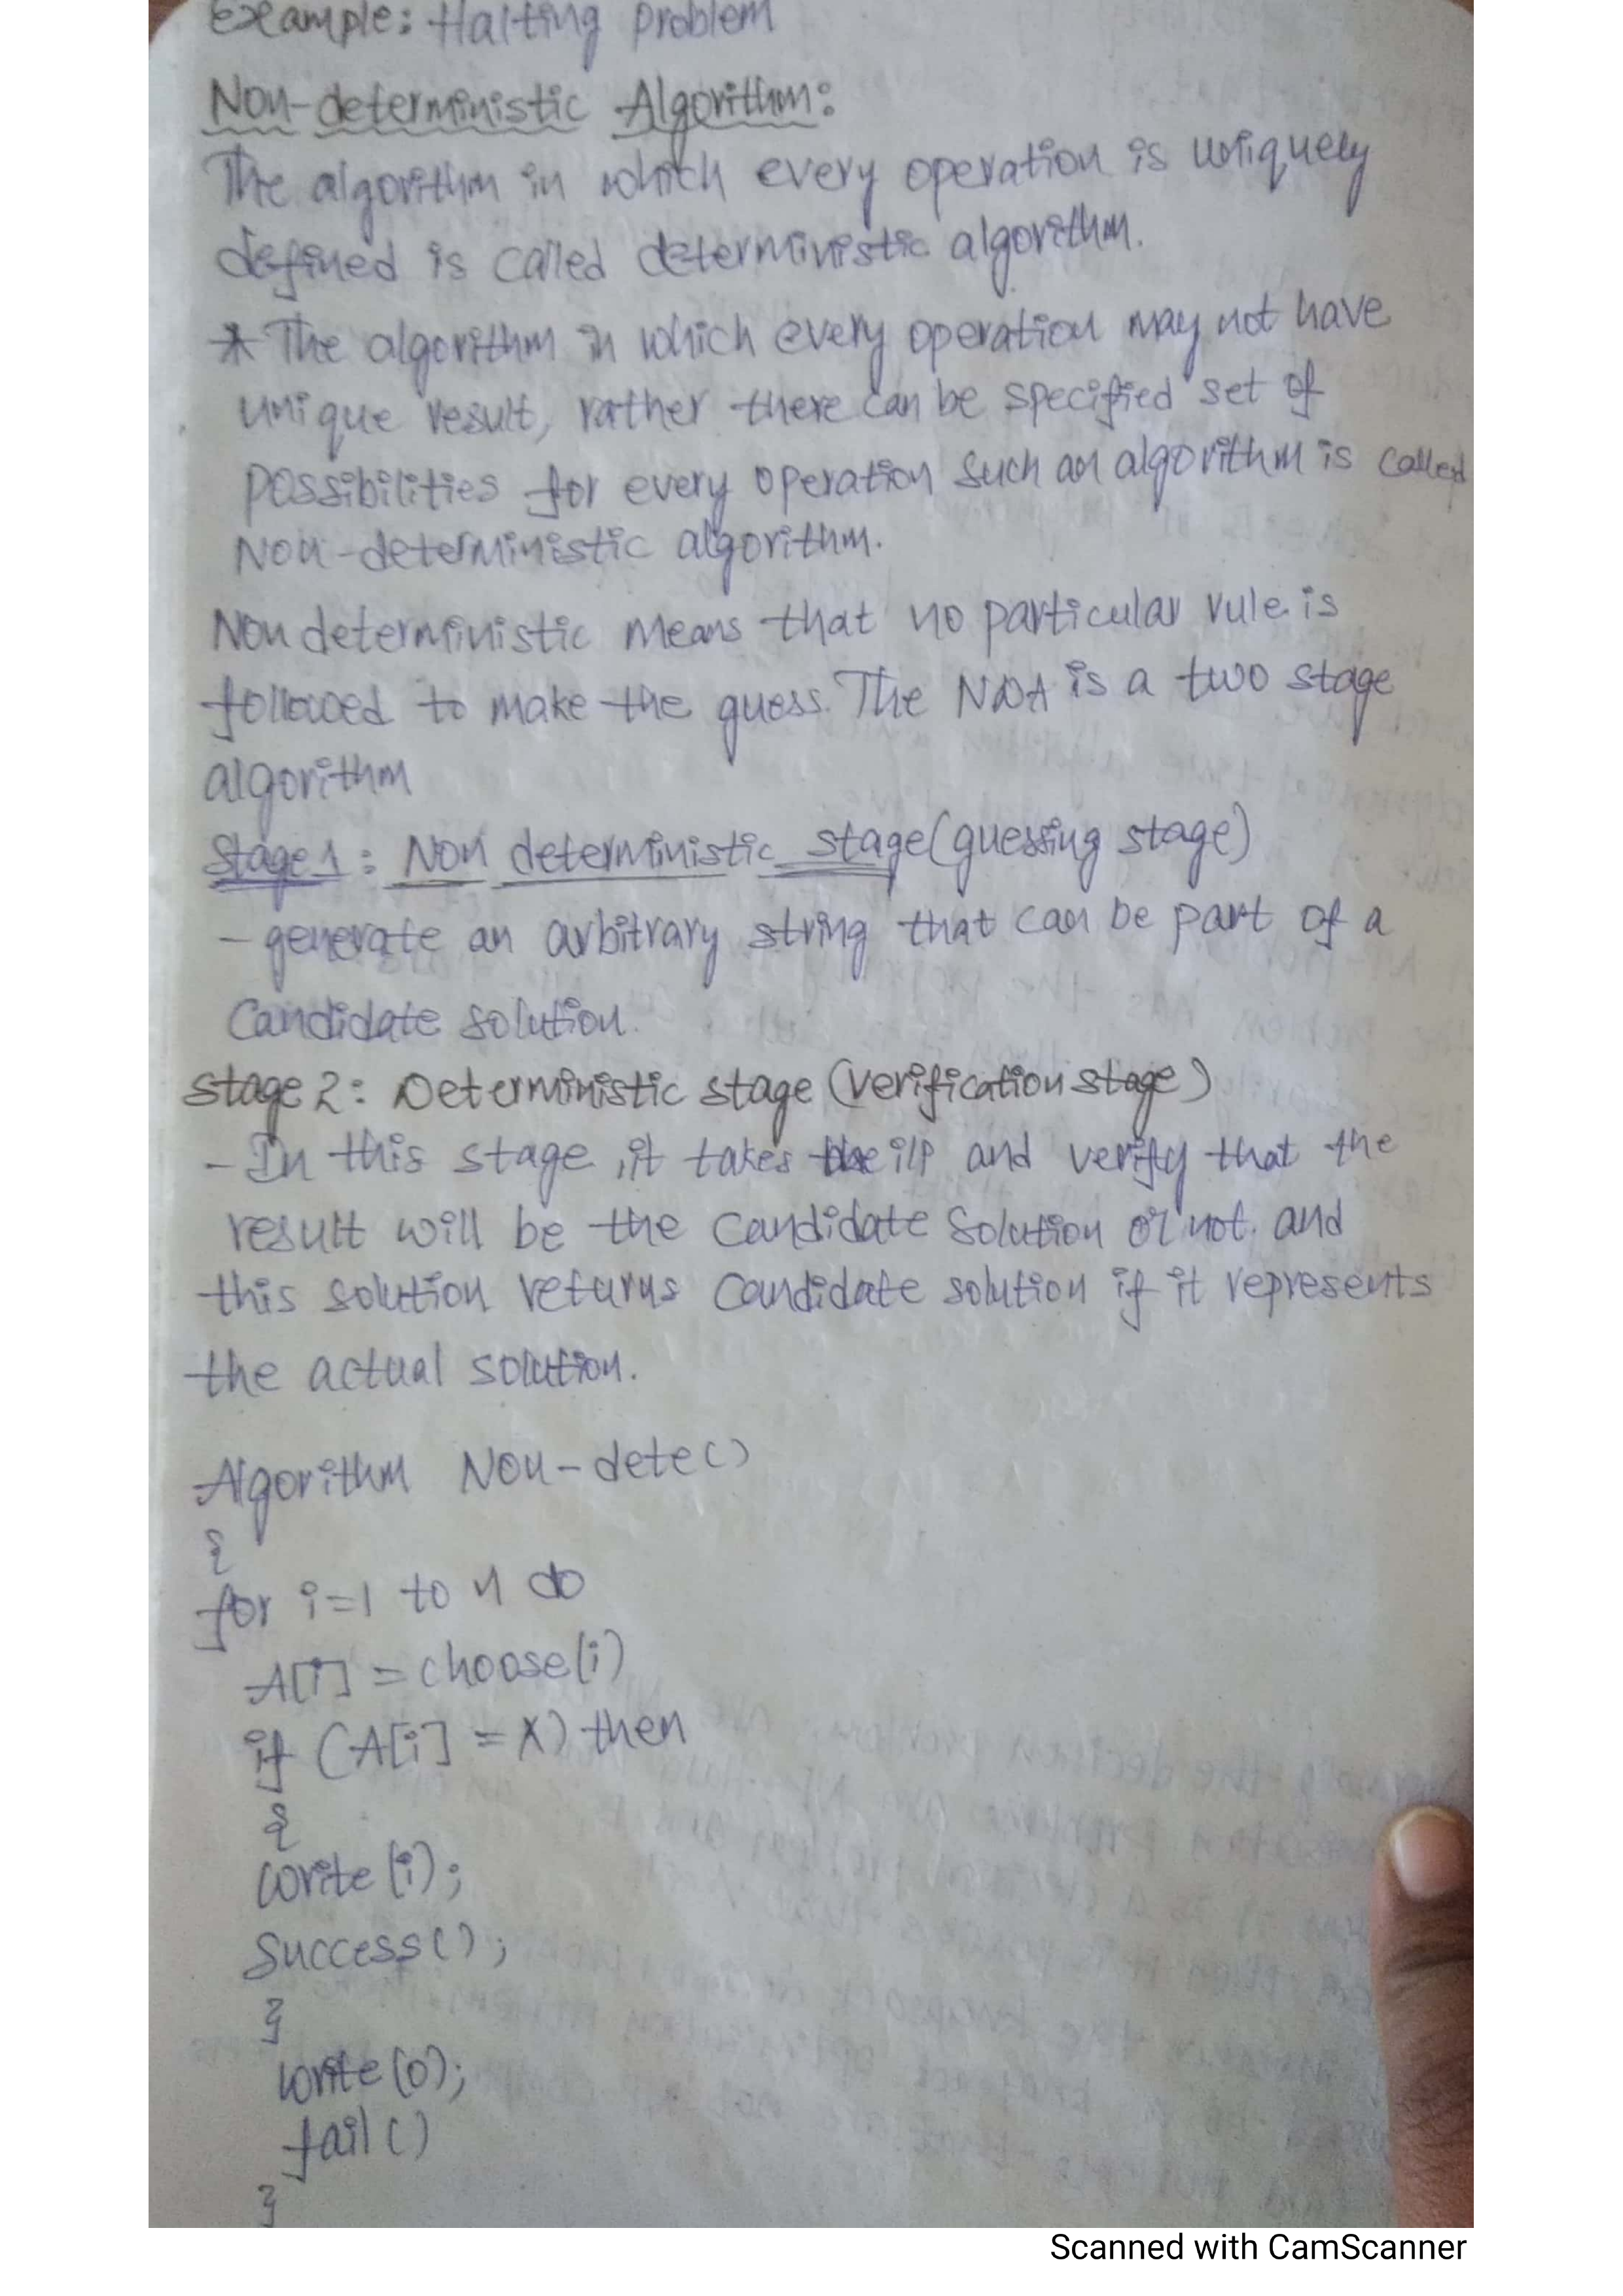 Example: Halting problem
Non-deterministic Algorithm:
The algorithm in which every operation is uniquely
defined is called deterministic algorithm.
* The algorithm in which every operation may not have
unique result, rather there can be specified set of
possibilities for every operation such an algorithm is called
Non-deterministic algorithm.
Non deterministic means that no particular rule is
followed to make the guess. The NDA is a two stage
algorithm
Stage 1: Non deterministic stage (guessing stage)
- generate an arbitrary string that can be part of a
Candidate solution.
Stage 2: Deterministic stage (verification stage)
- In this stage, it takes the i/p and verify that the
result will be the candidate solution or not. and
this solution returns candidate solution if it represents
the actual solution.
Algorithm Non-dete()
{
for i=1 to n do
A[i] = choose(i)
if (A[i] = X) then
{
write(i);
Success();
}
write(0);
fail()
}
Scanned with CamScanner